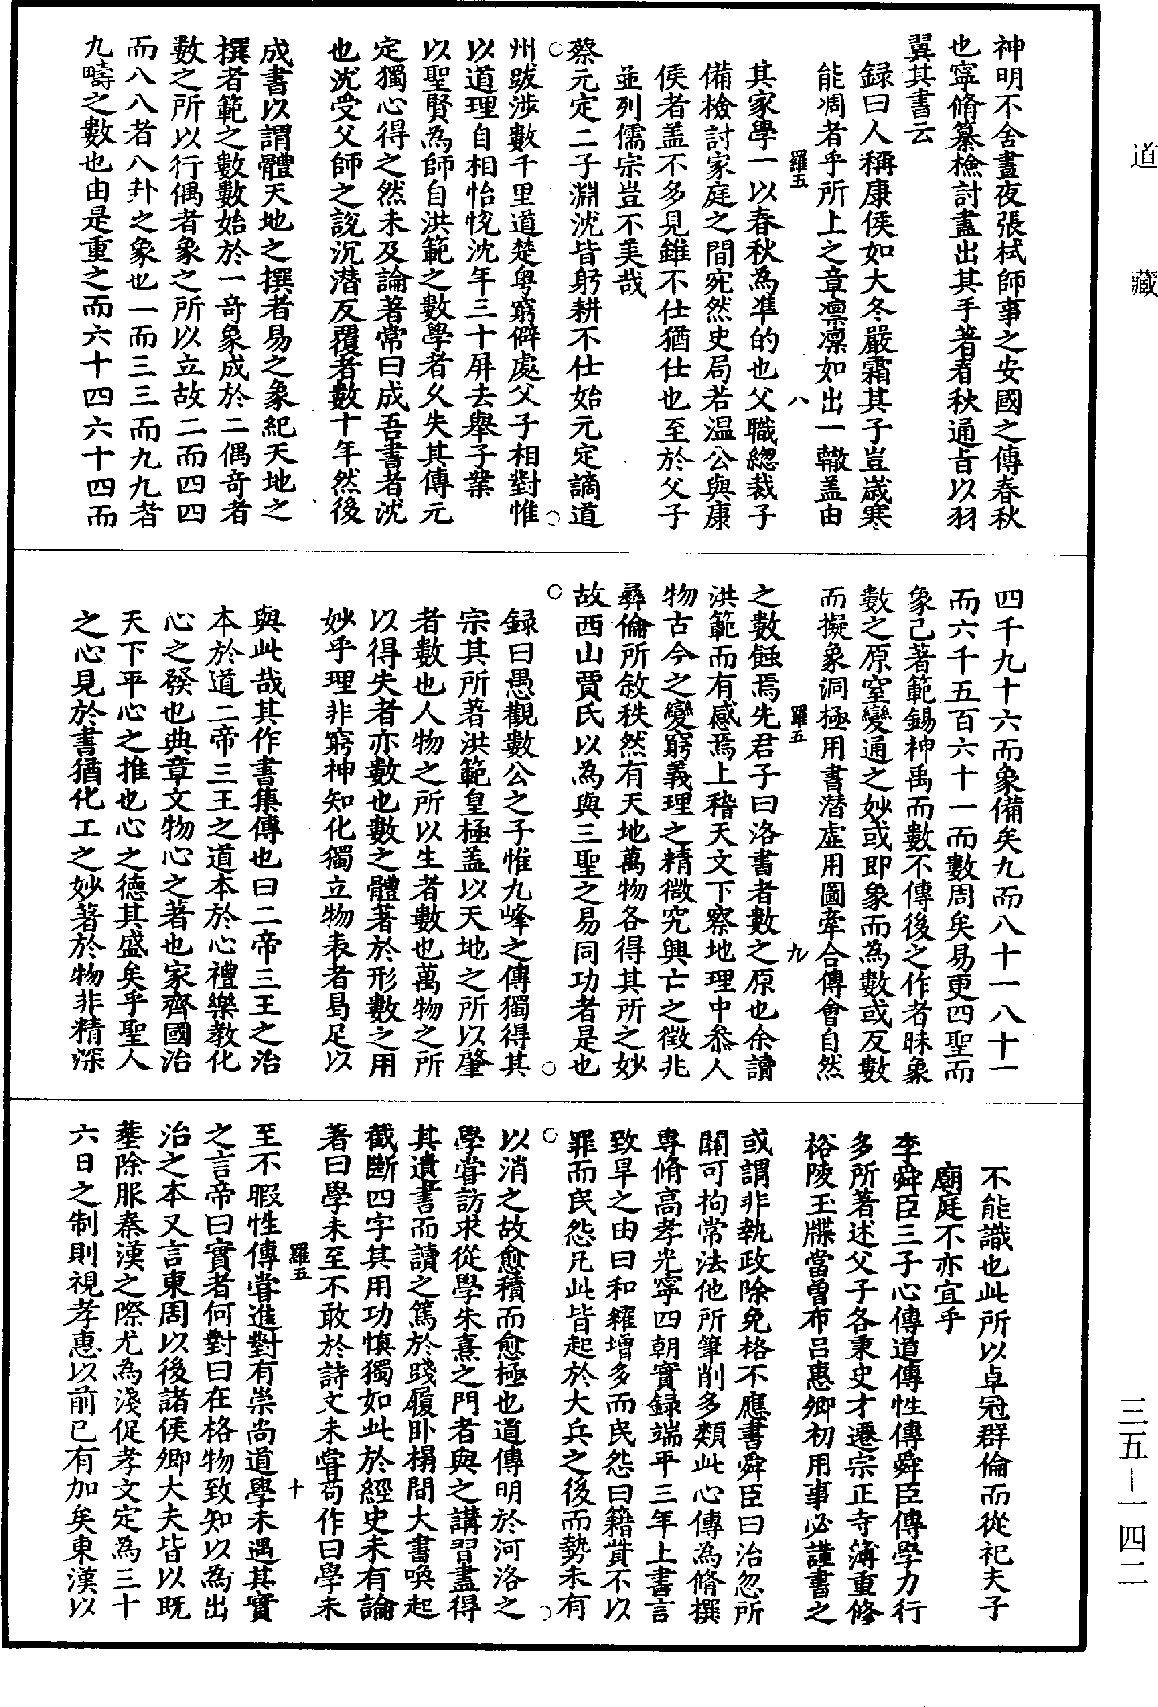 道藏
神明不舍晝夜張栻師事之安國之傳春秋
也寧脩纂檢討盡出其手著春秋通旨以羽
翼其書云
録曰人稱康侯如大冬嚴霜其子豈歲寒
能凋者乎所上之章凛凛如出一轍盖由
羅五 八
其家學一以春秋為準的也父職緫裁子
備檢討家庭之間宛然史局若温公與康
侯者盖不多見雖不仕猶仕也至於父子
並列儒宗豈不美哉
○
蔡元定二子淵沈皆躬耕不仕始元定謫道
州跋涉數千里道楚粤窮僻處父子相對惟
以道理自相怡悅沈年三十屏去舉子業
以聖賢為師自洪範之數學者久失其傳元
定獨心得之然未及論著常曰成吾書者沈
也沈受父師之說沉潜反覆者數十年然後
成書以謂體天地之撰者易之象紀天地之
撰者範之數數始於一奇象成於二偶奇者
數之所以行偶者象之所以立故二而四四
而八八者八卦之象也一而三三而九九者
九疇之數也由是重之而六十四六十四而
四千九十六而象備矣九而八十一八十一
而六千五百六十一而數周矣易更四聖而
象已著範錫神禹而數不傳後之作者昧象
數之原窒變通之妙或即象而為數或反數
而擬象洞極用書潜虛用圖牽合傳會自然
羅五 九
之數蝕焉先君子曰洛書者數之原也余讀
洪範而有感焉上稽天文下察地理中叅人
物古今之變窮義理之精微究興亡之徵兆
彝倫所敘秩然有天地萬物各得其所之妙
故西山賈氏以為與三聖之易同功者是也
○
録曰愚觀數公之子惟九峰之傳獨得其
宗其所著洪範皇極盖以天地之所以肇
者數也人物之所以生者數也萬物之所
以得失者亦數也數之體著於形數之用
妙乎理非窮神知化獨立物表者曷足以
與此哉其作書集傳也曰二帝三王之治
本於道二帝三王之道本於心禮樂教化
心之發也典章文物心之著也家齊國治
天下平心之推也心之德其盛矣乎聖人
之心見於書猶化工之妙著於物非精深
不能識也此所以卓冠群倫而從祀夫子
廟庭不亦宜乎
李舜臣三子心傳道傳性傳舜臣傳學力行
多所著述父子各秉史才遷宗正寺簿重修
裕陵玉牒當曾布呂惠卿初用事必謹書之
或謂非執政除免格不應書舜臣曰治忽所
關可拘常法他所筆削多類此心傳為脩撰
專脩高孝光寧四朝實録端平三年上書言
致旱之由曰和糴增多而民怨曰籍貲不以
罪而民怨凡此皆起於大兵之後而勢未有
○
以消之故愈積而愈極也道傳明於河洛之
學嘗訪求從學朱熹之門者與之講習盡得
其遺書而讀之篤於踐履卧榻間大書喚起
截斷四字其用功慎獨如此於經史未有論
著曰學未至不敢於詩文未嘗苟作曰學未
羅五 十
至不暇性傳嘗進對有崇尚道學未遇其實
之言帝曰實者何對曰在格物致知以為出
治之本又言東周以後諸侯卿大夫皆以既
塟除服秦漢之際尤為淺促孝文定為三十
六日之制則視孝惠以前已有加矣東漢以
三五－一四二